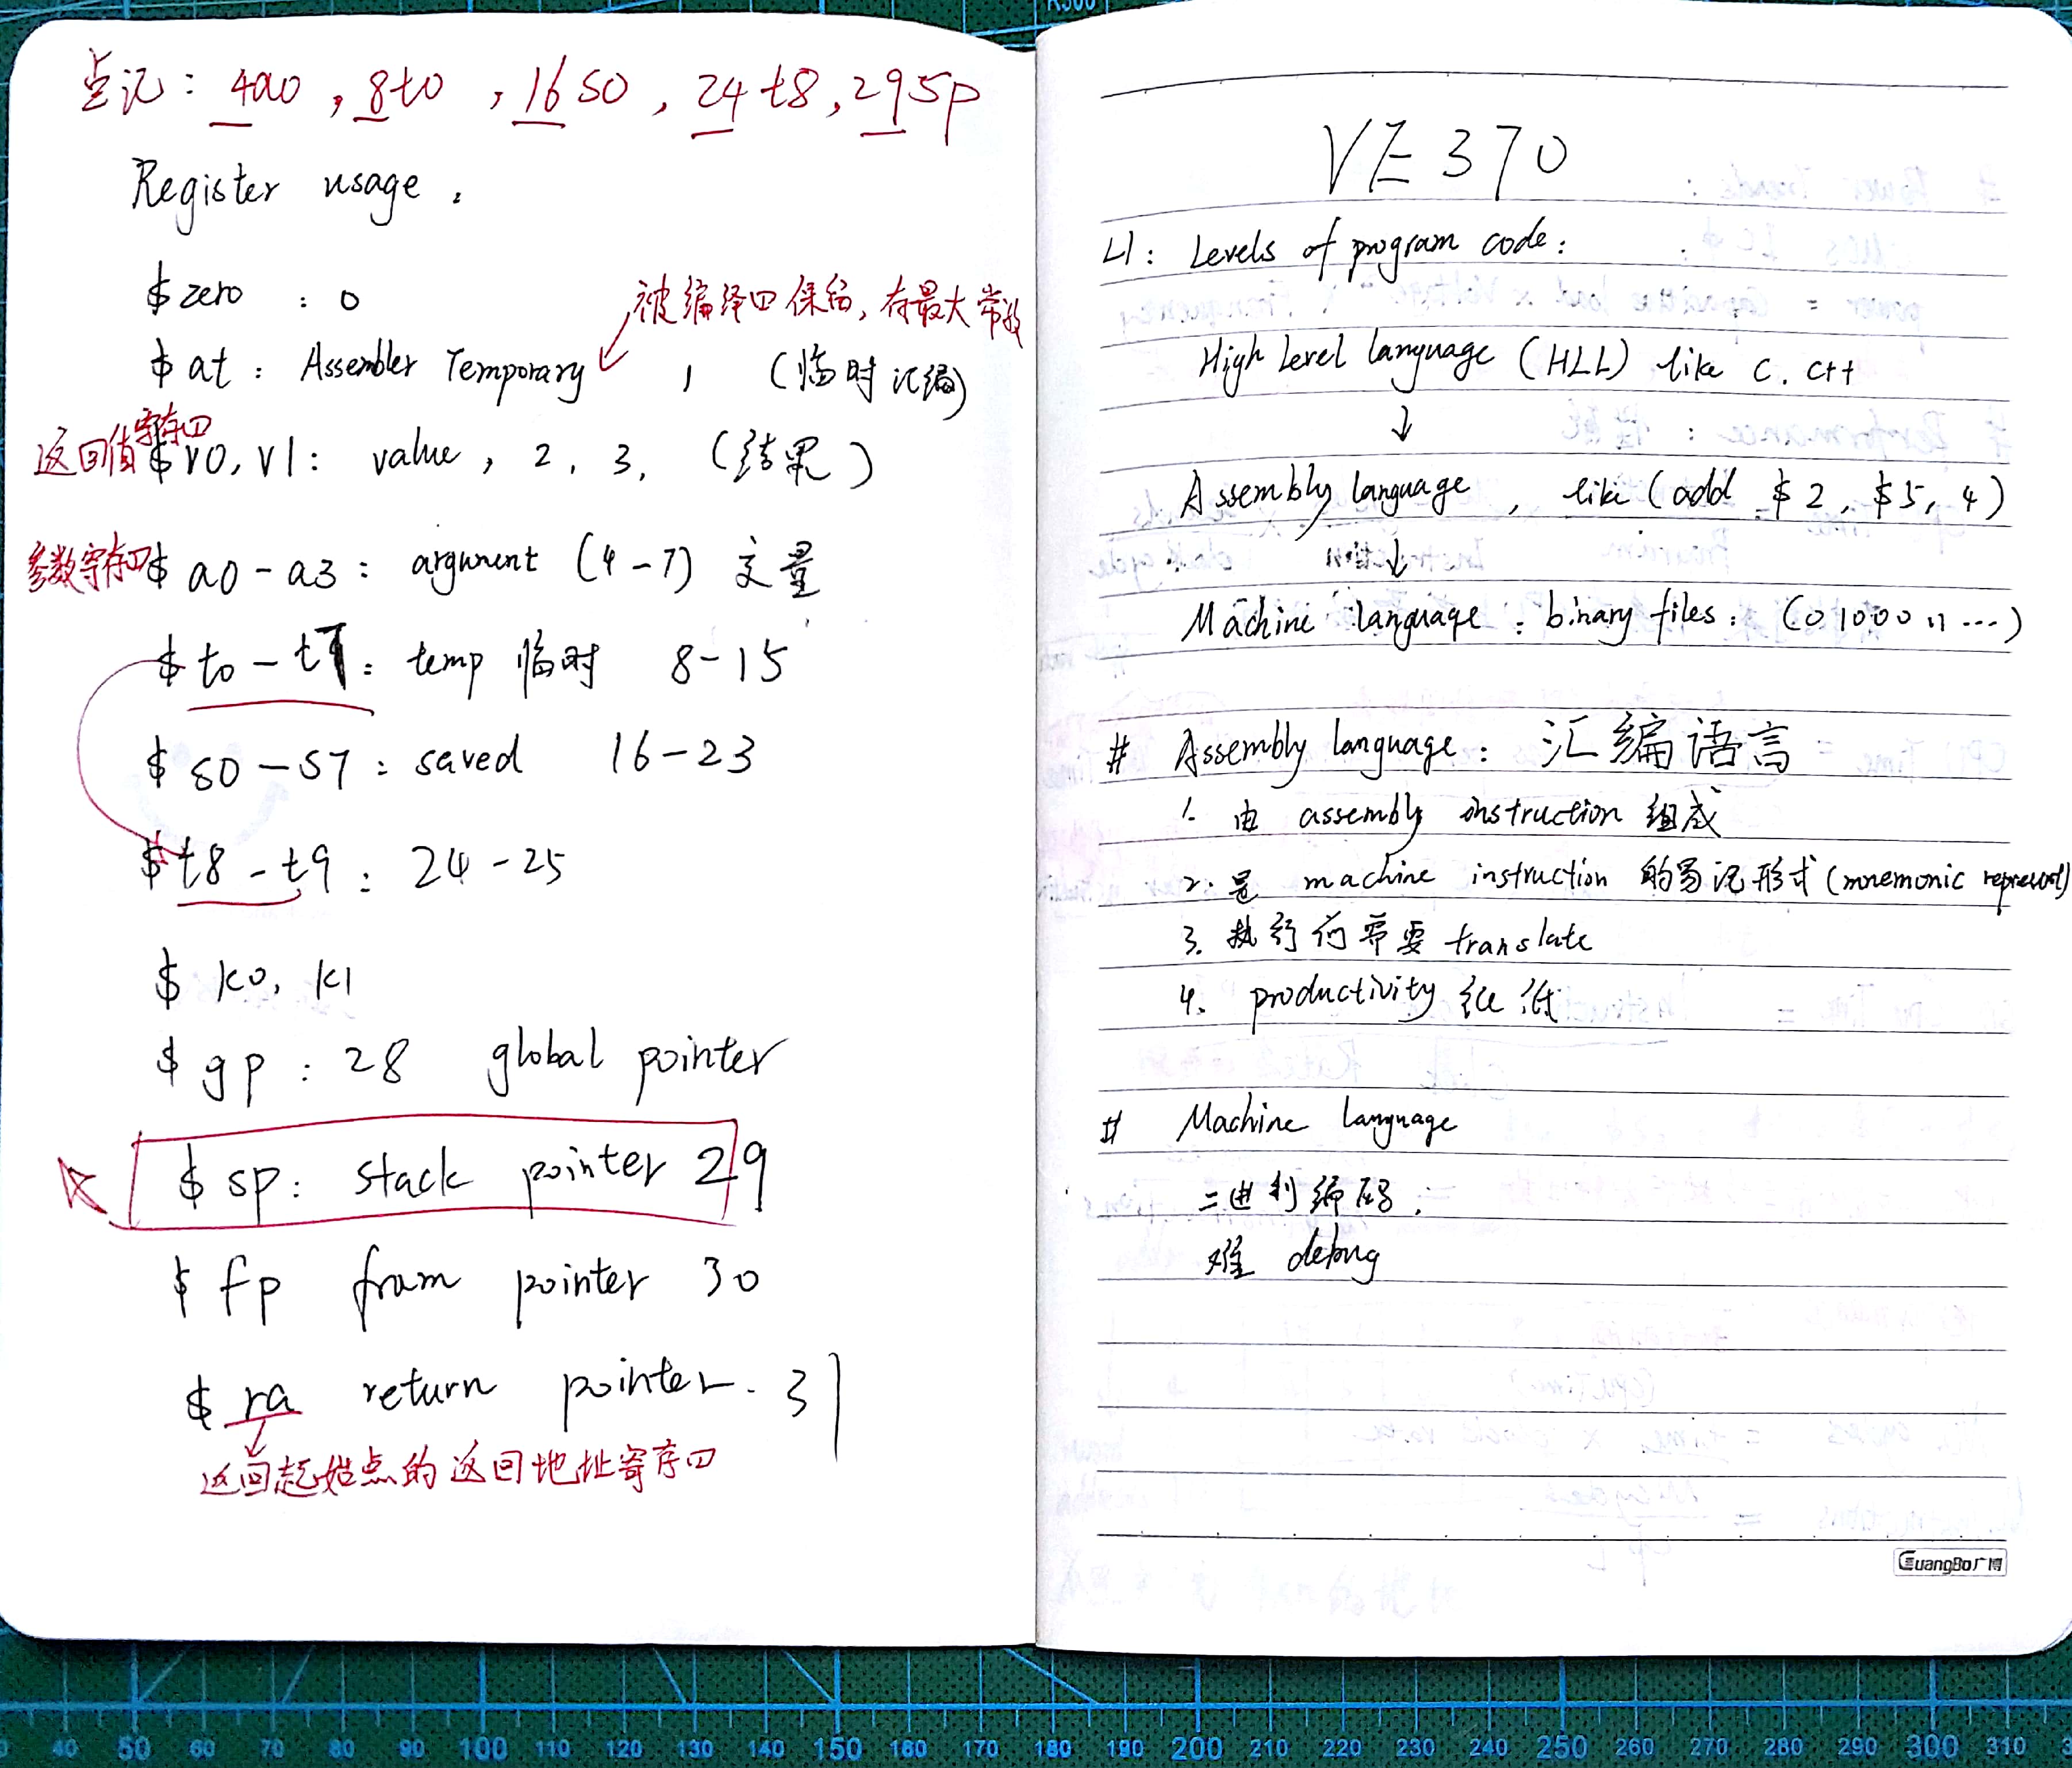 点记: 4a0, 8t0, 16s0, 24t8, 29sp
Register usage.
$zero : 0
被编译四保留, 存最大常数
$at : Assembler Temporary 1 (临时汇编)
返回值寄存四
$v0, v1: value, 2, 3, (结果)
参数寄存四
$a0-a3: argument (4-7) 变量
$t0-t7: temp 临时 8-15
$s0-s7: saved 16-23
$t8-t9: 24-25
$k0, k1
$gp: 28 global pointer
$sp: stack pointer 29
$fp fram pointer 30
$ra return pointer. 31
返回起始点的返回地址寄存四
VE370
L1: Levels of program code:
High Level language (HLL) like C. C++
↓
Assembly language, like (add $2, $5, 4)
↓
Machine language: binary files: (0100011...)
# Assembly language: 汇编语言
1. 由 assembly instruction 组成
2. 是 machine instruction 的易记形式 (mnemonic represent)
3. 执行前需要 translate
4. productivity 很低
# Machine language
二进制编码:
难 debug
GuangBo广博
0 40 50 60 70 80 90 100 110 120 130 140 150 160 170 180 190 200 210 220 230 240 250 260 270 280 290 300 310